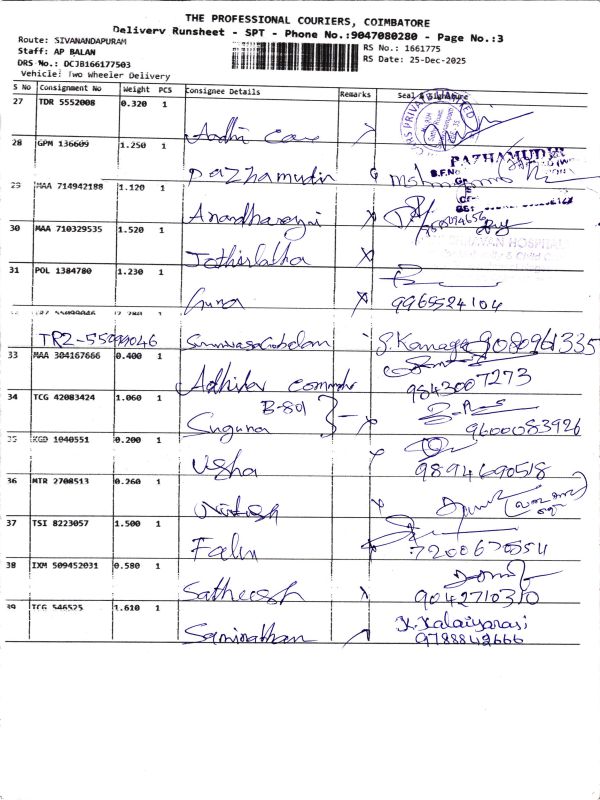 THE PROFESSIONAL COURIERS, COIMBATORE
Delivery Runsheet - SPT - Phone No.:9047080280 - Page No.:3
Route: SIVANANDAPURAM
Staff: AP BALAN
DRS No.: DCJB166177503
Vehicle: Two Wheeler Delivery
RS No.: 1661775
RS Date: 25-Dec-2025
S No Consignment No Weight PCS Consignee Details Remarks Seal & Signature
27 TDR 5552008 0.320 1
Aadhi Care
28 GPM 136609 1.250 1
Pazhamudir
PAZHAMUDIR
29 MAA 714942188 1.120 1
Anandharayni
30 MAA 710329535 1.520 1
Jothislatha
HOSPITAL
31 POL 1384780 1.230 1
Guna 9965524104
TR2-55099046 SrinivasaGobalan S.Kanaga 9080961335
33 MAA 304167666 0.400 1
Adhitor 9843007273
34 TCG 42083424 1.060 1
B-801
Suguna 9600083926
35 KGD 1040551 0.200 1
Usha 9894690518
36 MTR 2708513 0.260 1
37 TSI 8223057 1.500 1
7200670554
38 IXM 509452031 0.580 1
Satheesh 9042710310
39 TCG 546525 1.610 1
K.Kalaiyarasi
Saminathan 9788842666